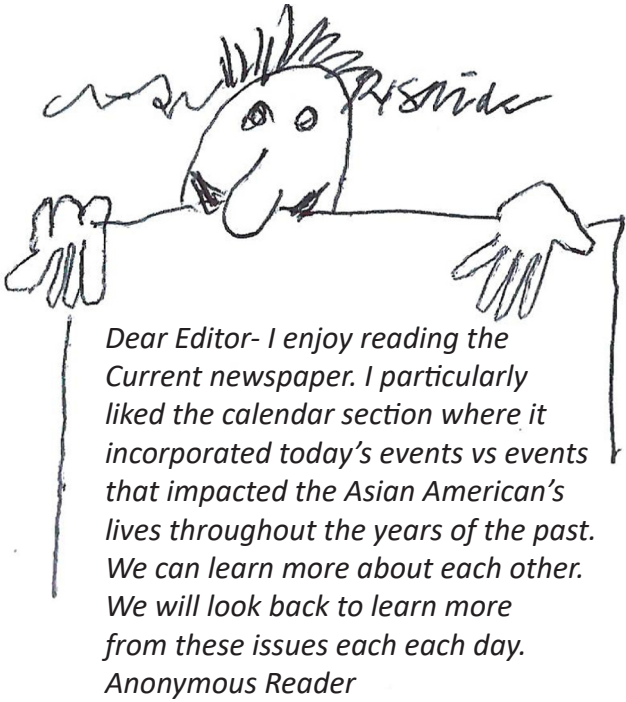 Dear Editor- I enjoy reading the
Current newspaper. I particularly
liked the calendar section where it
incorporated today’s events vs events
that impacted the Asian American’s
lives throughout the years of the past.
We can learn more about each other.
We will look back to learn more
from these issues each each day.
Anonymous Reader